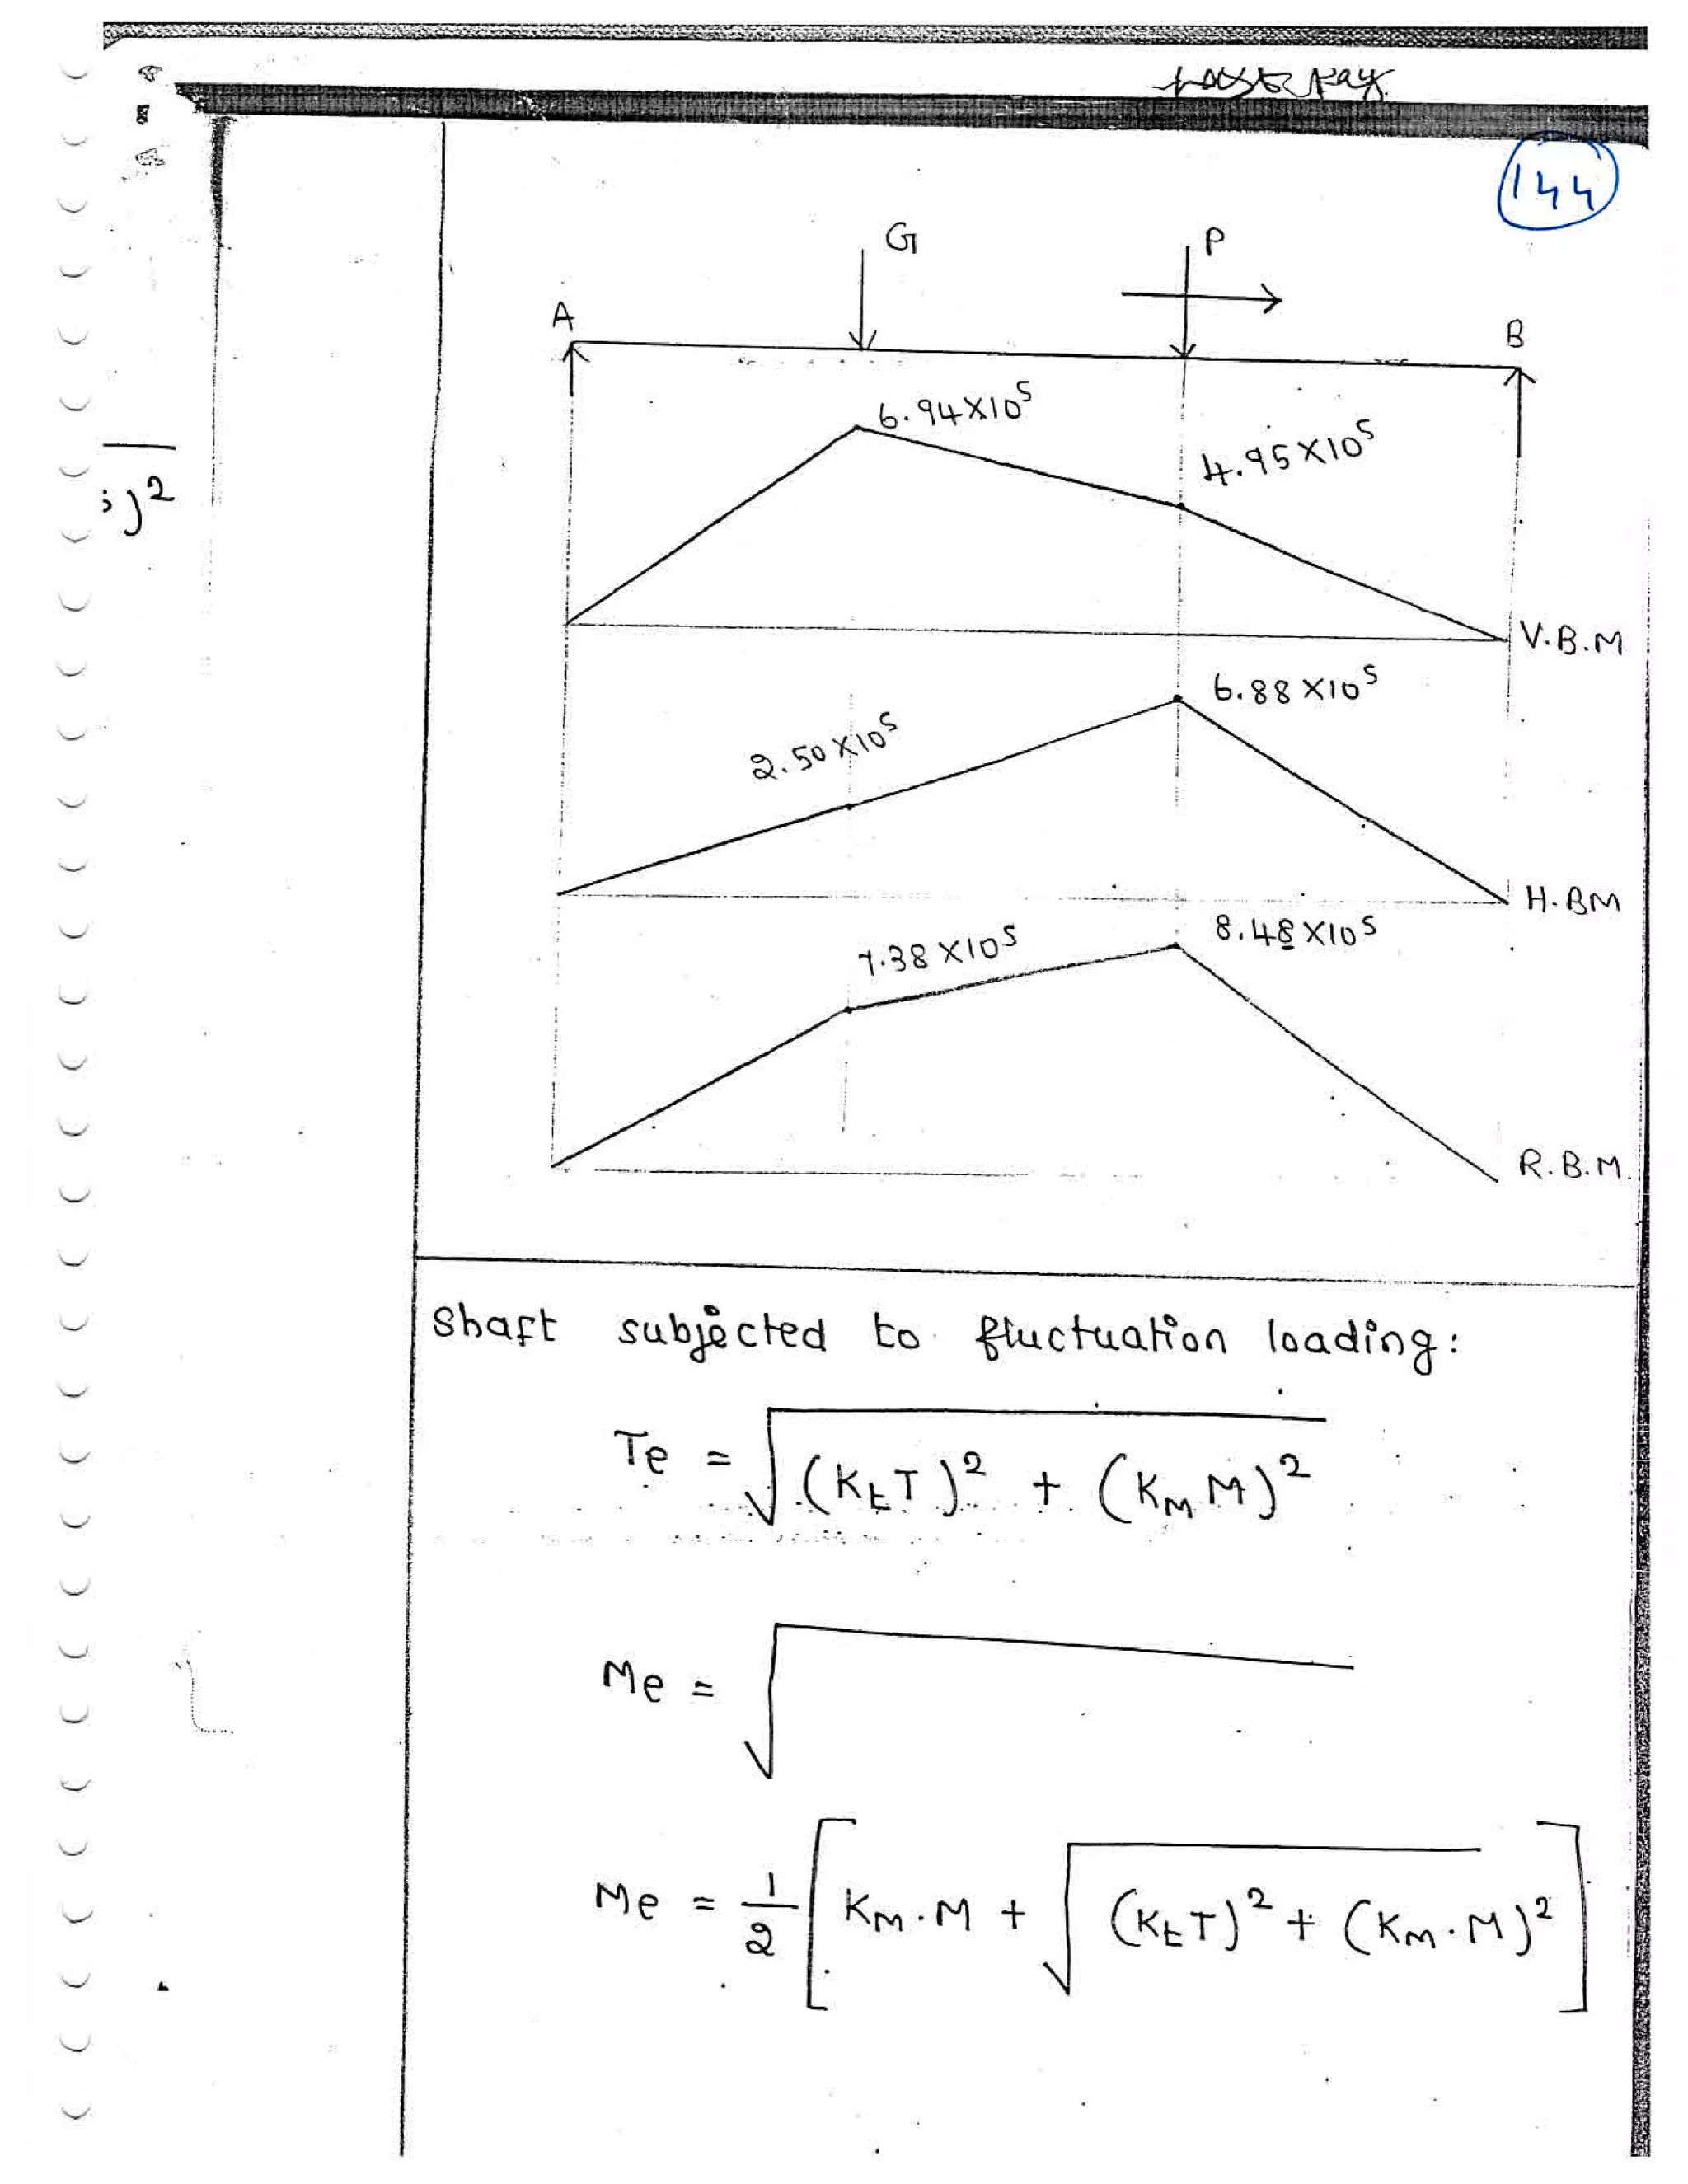 144
G P
A B
6.94×10⁵
4.95×10⁵
)²
V.B.M
6.88×10⁵
2.50×10⁵
H.BM
8.48×10⁵
7.38×10⁵
R.B.M.
Shaft subjected to fluctuation loading:
Te = √(K_t T)² + (K_M M)²
Me = √
Me = 1/2 [K_M . M + √(K_t T)² + (K_M . M)²]